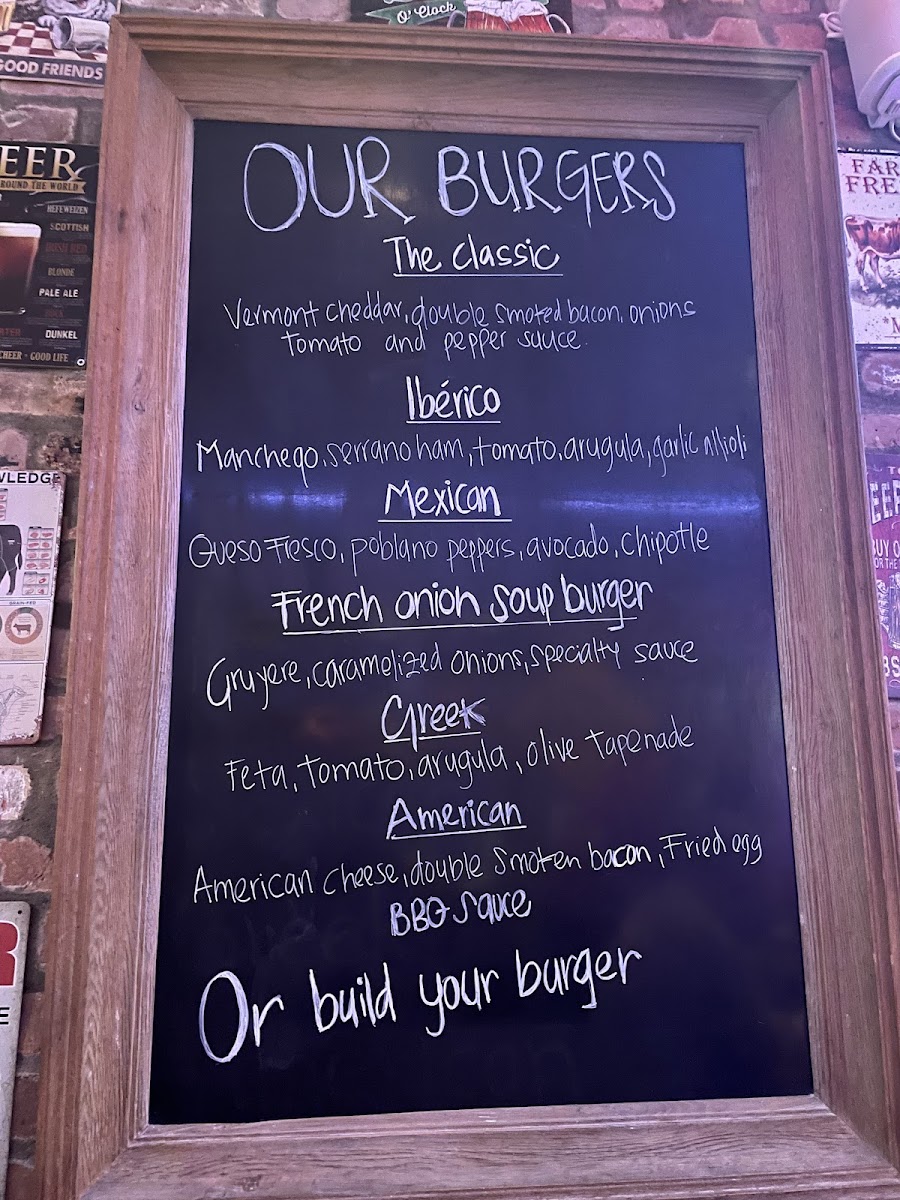 O'Clock
GOOD FRIENDS
OUR BURGERS
The classic
Vermont cheddar, double smoted bacon, onions
tomato and pepper sauce.
Ibérico
Manchego, serrano ham, tomato, arugula, garlic Allioli
Mexican
Queso Fresco, poblano peppers, avocado, chipotle
French onion soup burger
Gruyere, caramelized onions, specialty sauce
Greek
Feta, tomato, arugula, olive tapenade
American
American cheese, double smoten bacon, Fried egg
BBQ sauce
Or build your burger
EER
ROUND THE WORLD
HEFEWEIZEN
SCOTTISH
IRISH RED
BLONDE
PALE ALE
DUNKEL
CHEER - GOOD LIFE
WLEDGE
GRAIN-FED
FAR
FRE
"M
EER
BUY O
OR THE
BS
R
E